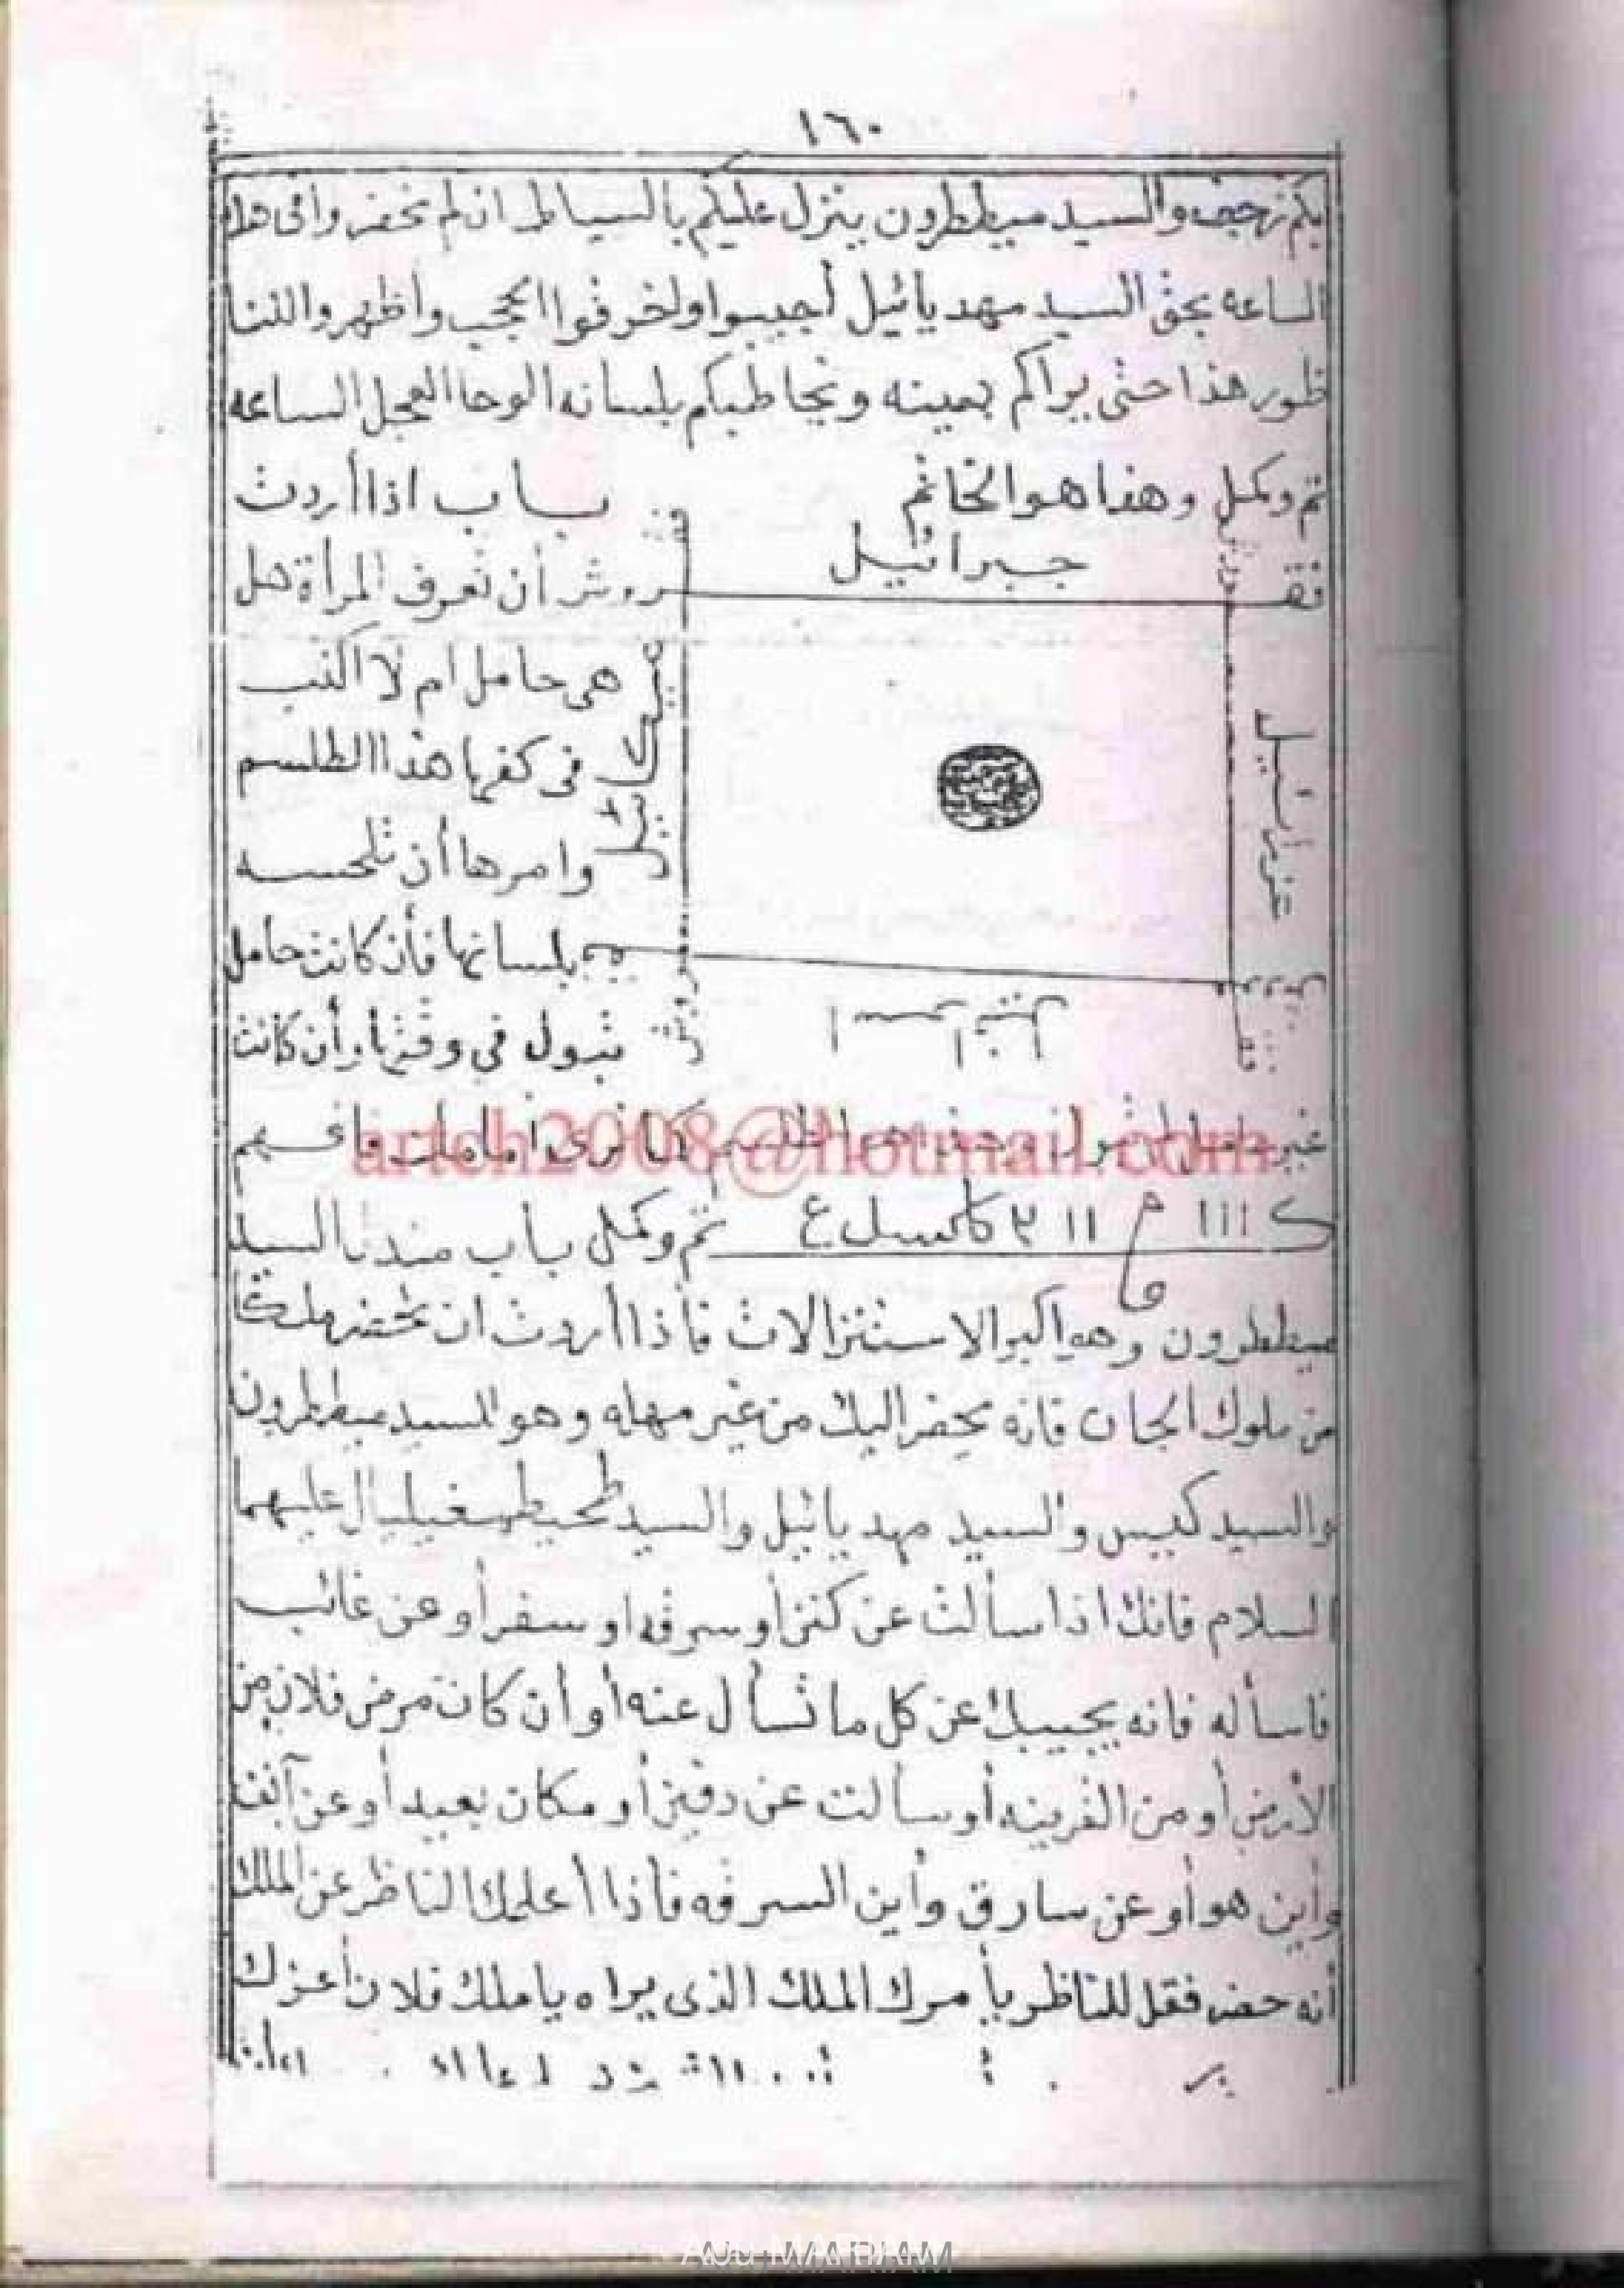 ١٦٠
والسيد ميططرون ينزل عليكم بالسياط ان لم تحضروا في هذه
الساعه بحق السيد مهديائيل أجيبوا واخرقوا الحجب وأظهروا للنا
ظور هذا حتى يراكم بعينه ويخاطبكم بلسانه الوحا العجل الساعه
تم وكمل وهذا هو الخاتم
جبرائيل
عزرائيل
ميكائيل
باب اذا أردت
أن تعرف المرأة هل
هى حامل ام لا اكتب
فى كفها هذا الطلسم
وامرها أن تلحسه
بلسانها فأن كانت حامل
تبول في وقتها وأن كانت
غير حامل كما ترى
artch2008@hotmail.com
ك ااا م ١١ ٣ ع تم وكمل باب مندل السيد
ميططرون وهو اكبر الاستنزالات فأذا أردت ان تحضر ملكا
من ملوك الجان فانه يحضر اليك من غير مهله وهو السيد ميططرون
والسيد كبيس والسيد مهديائيل والسيد عليهما
السلام فانك اذا سألت عن كنز أو سرقه او سفر أو عن غائب
فاسأله فانه يجيبك عن كل ما تسأل عنه أو أن كان مرض فلان من
الأرض أو من القرينه أو سألت عن دفين أو مكان بعيد أو عن آبق
وأين هو أو عن سارق وأين السرقه فأذا أعلمك الناظر عن الملك
أنه حضر فقل للناظر يأمرك الملك الذى يراه يا ملك فلان أعزك
Abu MARIAM